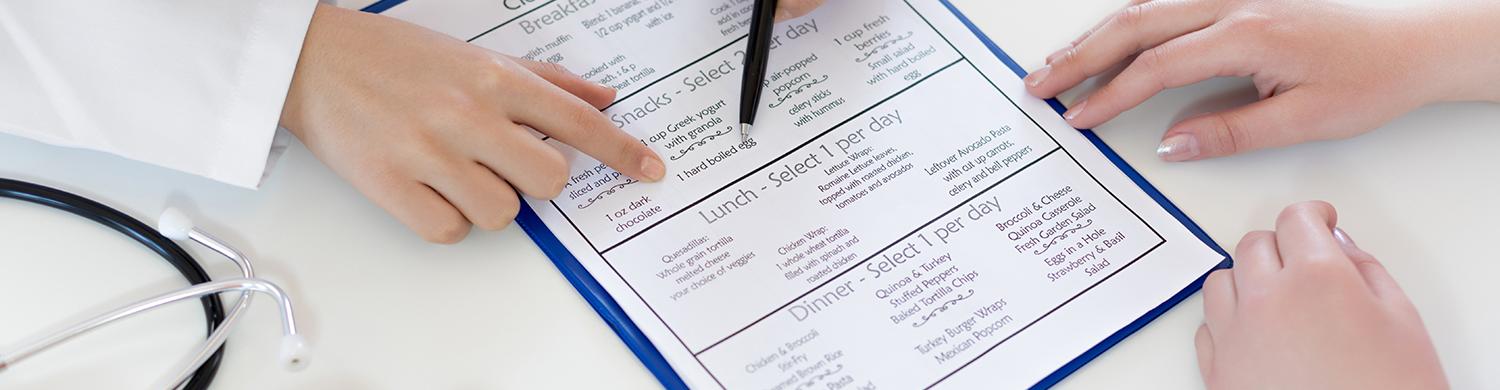 Breakfas
English muffin
egg
Blend: 1 banana,
1/2 cup yogurt and 1/2
with ice
cooked with
s & p
tortilla
add in
fresh
Snacks - Select 2 per day
A fresh
sliced and
1 oz dark
chocolate
1 cup Greek yogurt
with granola
1 hard boiled egg
air-popped
popcorn
celery sticks
with hummus
1 cup fresh
berries
Small salad
with hard boiled
egg
Lunch - Select 1 per day
Quesadillas:
Whole grain tortilla
melted cheese
your choice of veggies
Chicken Wrap:
1 whole wheat tortilla
filled with spinach and
roasted chicken
Lettuce Wraps:
Romaine Lettuce leaves,
topped with roasted chicken,
tomatoes and avocados
Leftover Avocado Pasta
with cut up carrots,
celery and bell peppers
Dinner - Select 1 per day
Chicken & Broccoli
Stir-Fry
Brown Rice
Pasta
Quinoa & Turkey
Stuffed Peppers
Baked Tortilla Chips
Turkey Burger Wraps
Mexican Popcorn
Broccoli & Cheese
Quinoa Casserole
Fresh Garden Salad
Eggs in a Hole
Strawberry & Basil
Salad